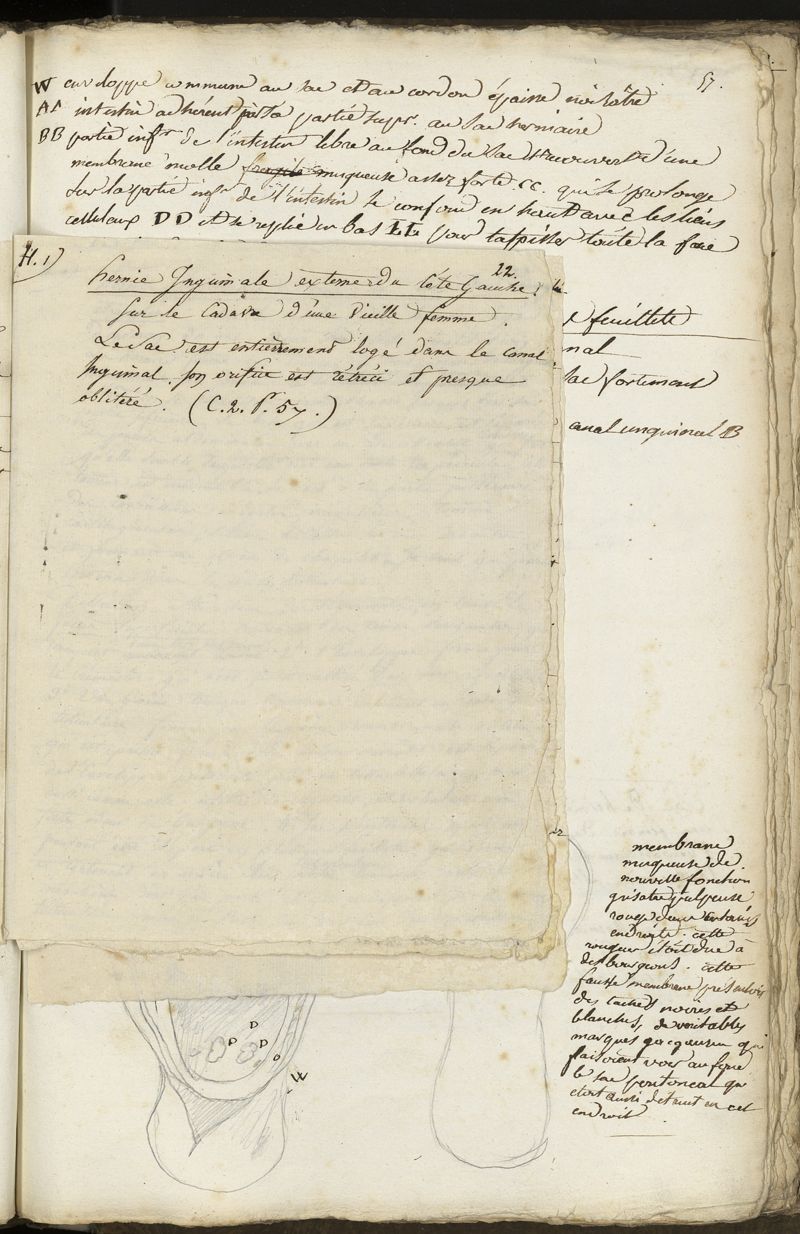 57.
W enveloppe commune au sac et au cordon épaisse noirâtre
AA intestin adhérent par sa partie supr. au sac herniaire
BB partie infre de l'intestin libre au fond du sac recouvert d'une
membrane molle fragile muqueuse assez forte CC qui se prolonge
sur la partie infr de l'intestin se confond en haut avec les liens
celluleux DD et se replie en bas EE pour tapisser toute la face
H.1)
22.
hernie Inguinale externe du Côté Gauche
sur le Cadavre d'une Vieille femme.
Le Sac est entièrement logé dans le canal
Inguinal, son orifice est rétréci et presque
oblitéré. (C.2. P. 57.)
feuillete
nal
sac fortement
canal inguinal B
membrane
muqueuse de
nouvelle fonction
grisatre pulpeuse
rouge dans certains
endroits. cette
rougeur étoit due à
des bourgeons. cette
fausse membrane présentoit
des taches noires et
blanches, de veritables
marques qui
faisoient voir au fond
le sac peritoneal qui
etoit aussi detruit en cet
endroit
D
D
D
D
W